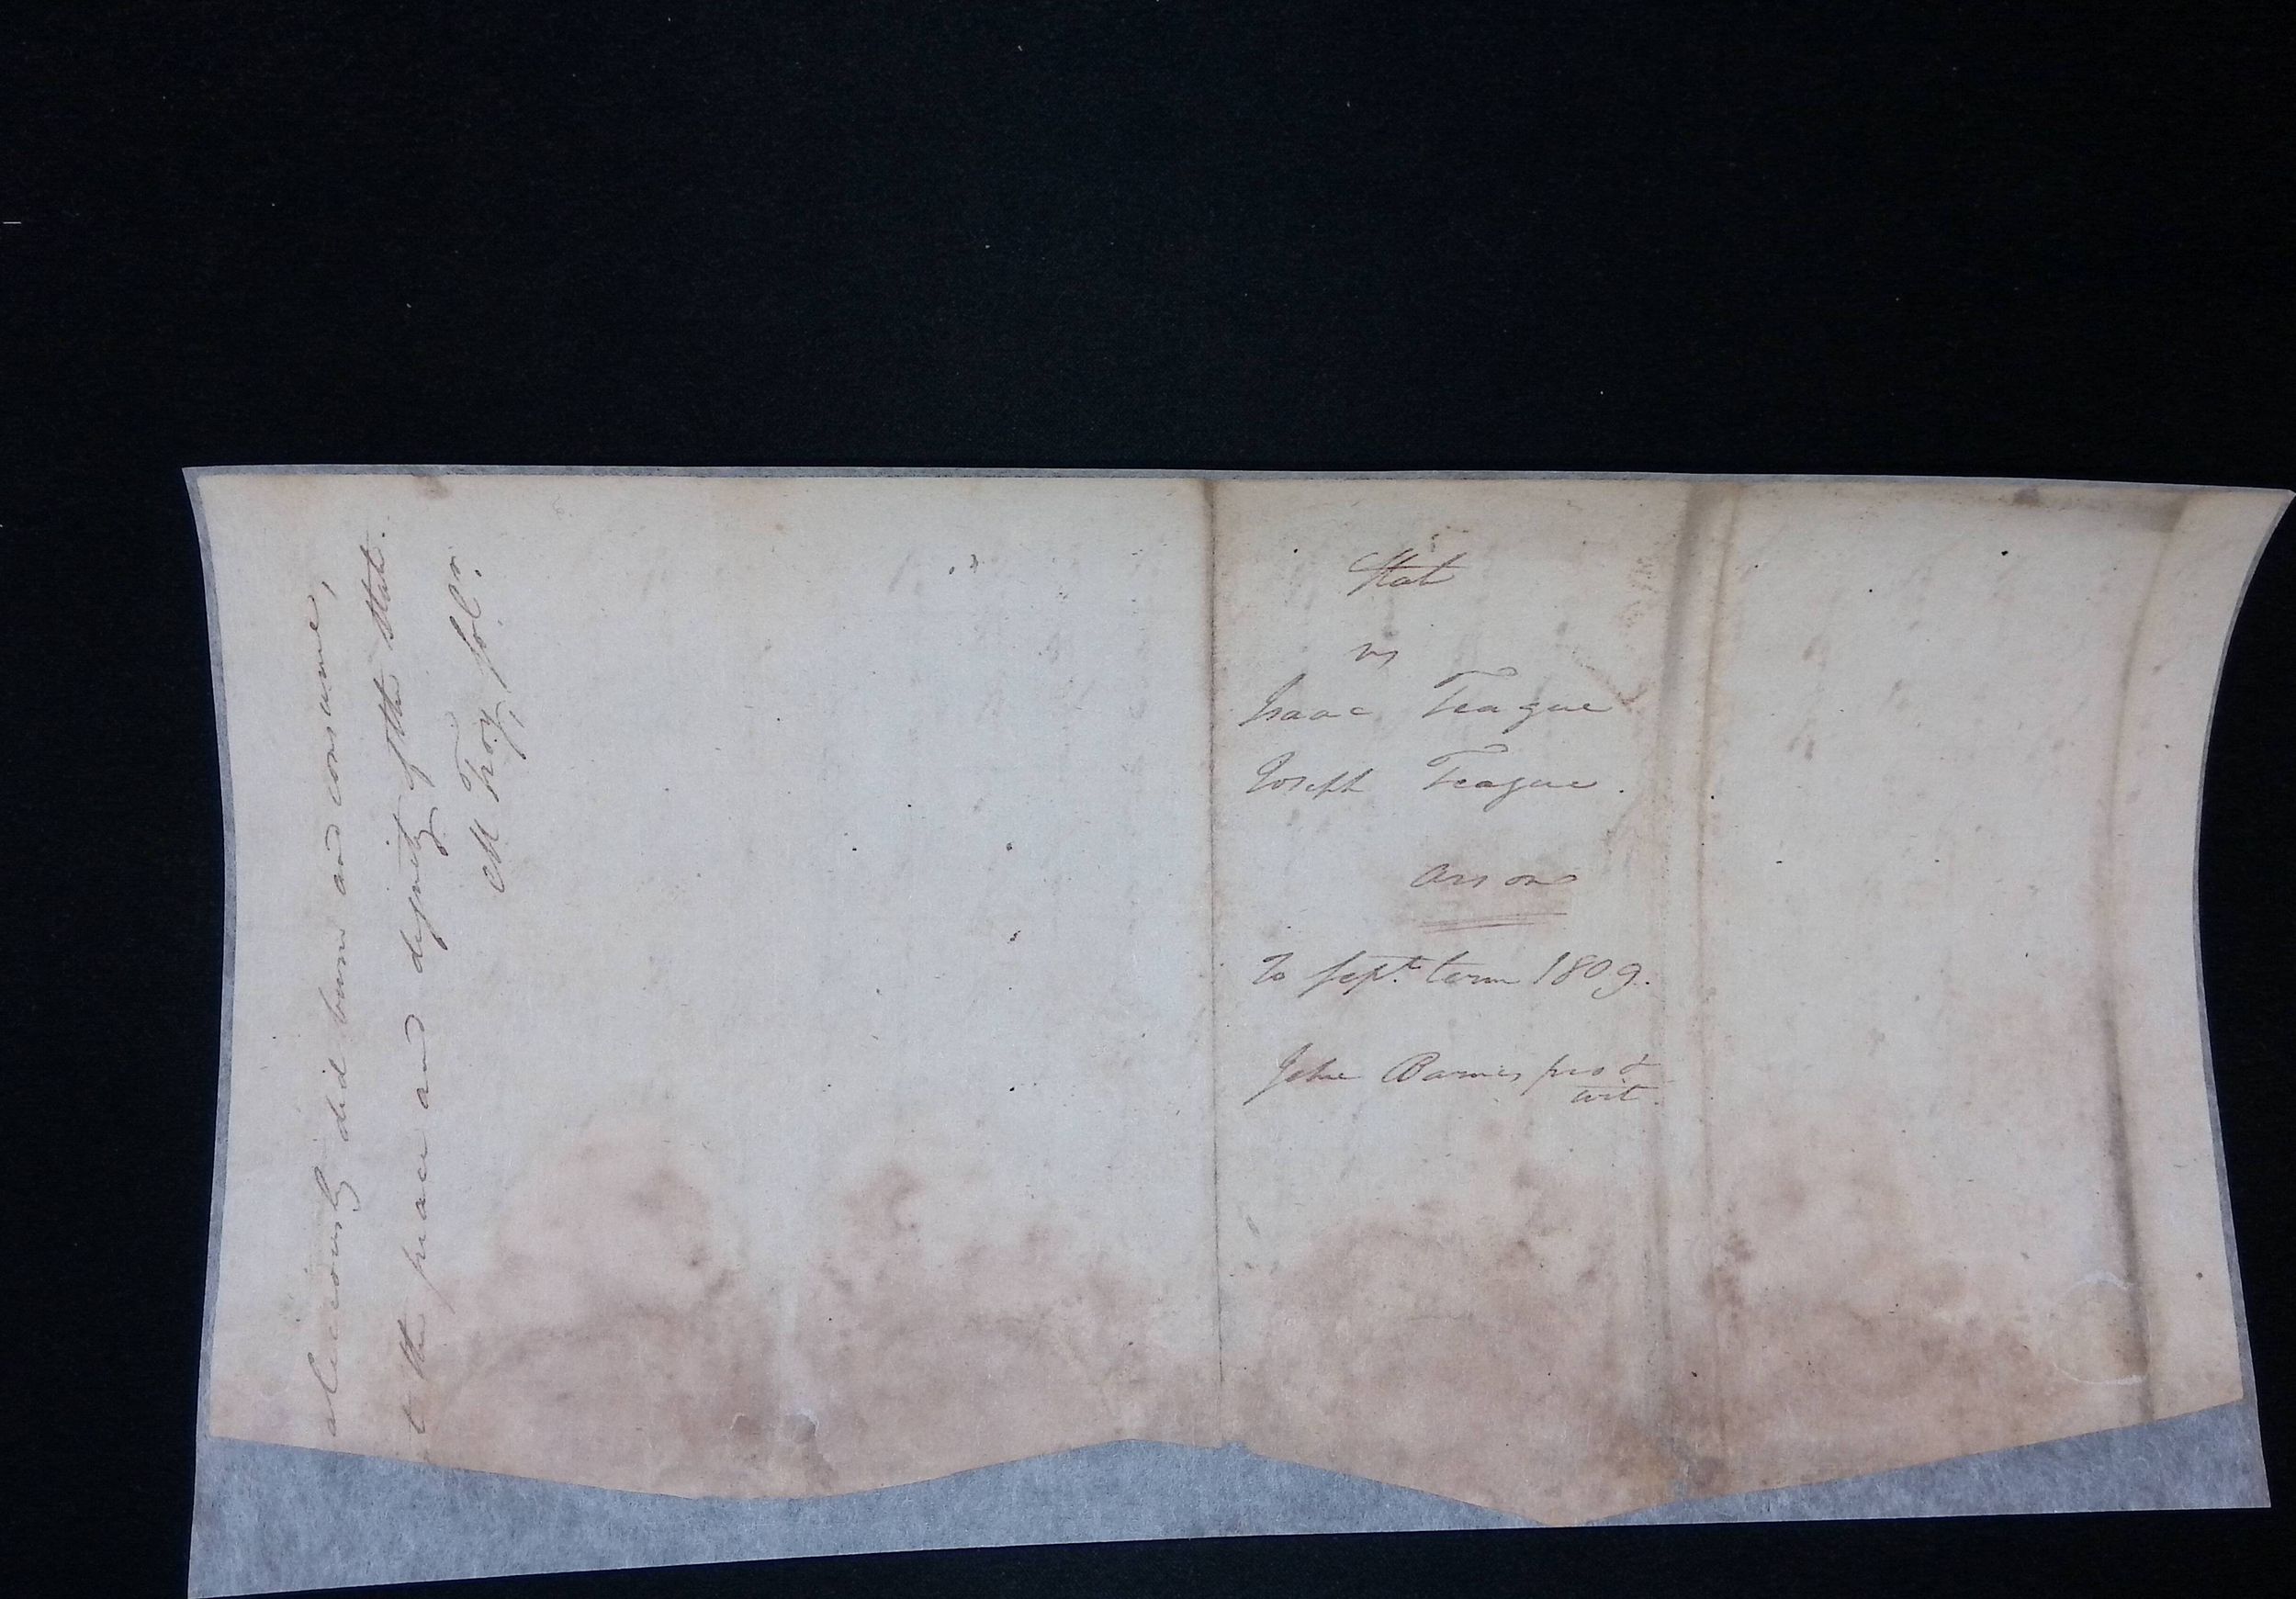 aliciously did burn and consume,
t the peace and dignity of the State.
M Troy, Solr.
State
vs
Isaac Teague
Joseph Teague.
Arson
To Sept. term 1809.
John Barnes pros &
wit.